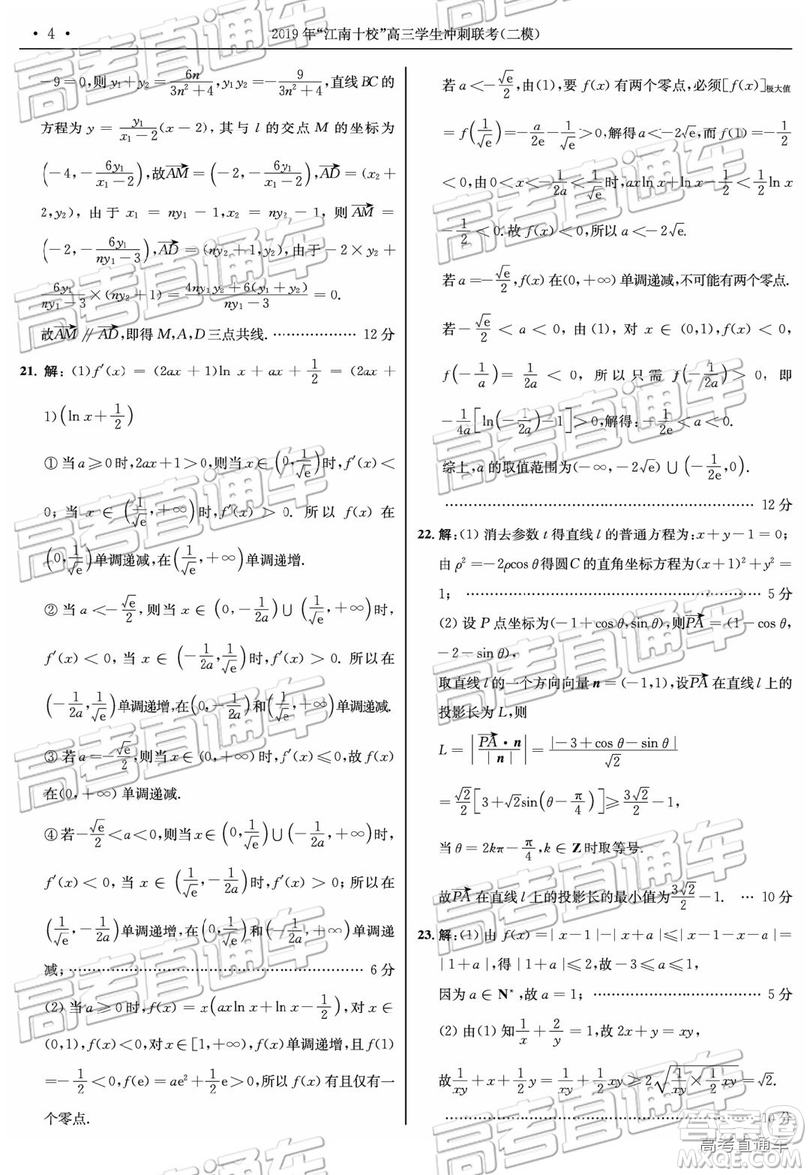 · 4 ·
2019年“江南十校”高三学生冲刺联考(二模)
-9=0,则 y₁+y₂=6n/(3n²+4),y₁y₂=-9/(3n²+4),直线BC的
方程为 y=y₁/(x₁-2)(x-2),其与 l 的交点 M 的坐标为
(-4,-6y₁/(x₁-2)),故AM→=(-2,-6y₁/(x₁-2)),AD→=(x₂+
2,y₂),由于 x₁=ny₁-1,x₂=ny₂-1,则 AM→=
(-2,-6y₁/(ny₁-3)),AD→=(ny₂+1,y₂),由于-2×y₂+
6y₁/(ny₁-3)×(ny₂+1)=(4ny₁y₂+6(y₁+y₂))/(ny₁-3)=0.
故AM→∥AD→,即得 M,A,D 三点共线. ……………… 12分
21. 解:(1)f′(x)=(2ax+1)ln x+ax+1/2=(2ax+
1)(ln x+1/2)
①当 a≥0时,2ax+1>0,则当 x∈(0,1/√e)时,f′(x)<
0;当 x∈(1/√e,+∞)时,f′(x)>0.所以 f(x)在
(0,1/√e)单调递减,在(1/√e,+∞)单调递增.
②当 a<-√e/2,则当 x∈(0,-1/2a)∪(1/√e,+∞)时,
f′(x)<0,当 x∈(-1/2a,1/√e)时,f′(x)>0.所以在
(-1/2a,1/√e)单调递增,在(0,-1/2a)和(1/√e,+∞)单调递减.
③若 a=-√e/2,则当 x∈(0,+∞)时,f′(x)≤0,故 f(x)
在(0,+∞)单调递减.
④若-√e/2<a<0,则当x∈(0,1/√e)∪(-1/2a,+∞)时,
f′(x)<0,当 x∈(1/√e,-1/2a)时,f′(x)>0.所以在
(1/√e,-1/2a)单调递增,在(0,1/√e)和(-1/2a,+∞)单调递
减;…………………………………………… 6分
(2)当 a≥0时,f(x)=x(axln x+ln x-1/2),当 x∈
(0,1),f(x)<0,当x∈[1,+∞)时,f(x)单调递增,f(1)
=-1/2<0,f(e)=ae²+1/2e>0,所以 f(x)有且只有一
个零点.
若 a<-√e/2,由(1),要 f(x)有两个零点,必须[f(x)]极大值
=f(1/√e)=-a/2e-1/√e>0,解得 a<-2√e,而 f(1)=-1/2
<0,由0<x<-1/(2a)<1/√e时,axln x+ln x-1/2<1/2ln x
-1/2<0.故 f(x)<0,所以 a<-2√e.
若 a=-√e/2,f(x)在(0,+∞)单调递减,不可能有两个零点.
若-√e/2<a<0,由(1),对 x∈(0,1),f(x)<0,
f(-1/a)=1/2a<0,所以只需 f(-1/2a)>0,即
-1/4a[ln(-1/2a)-1]>0,解得:-1/2e<a<0.
综上,a 的取值范围为(-∞,-2√e)∪(-1/2e,0).
…………………………………………… 12分
22. 解:(1)消去参数 t 得直线 l 的普通方程为:x+y-1=0;
由 ρ²=-2ρcos θ得圆C的直角坐标方程为(x+1)²+y²=
1; …………………………………………… 5分
(2)设 P 点坐标为(-1+cos θ,sin θ),则PA→=(1-cos θ,
-2-sin θ),
取直线 l 的一个方向向量 n=(-1,1),设PA→在直线 l 上的
投影长为 L,则
L=|PA→·n/|n||=|-3+cos θ-sin θ|/√2
=√2/2[3+√2sin(θ-π/4)]≥3√2/2-1,
当 θ=2kπ-π/4,k∈Z时,取等号.
故PA→在直线 l 上的投影长的最小值为3√2/2-1. … 10分
23. 解:(1)由 f(x)=|x-1|-|x+a|≤|x-1-x-a|=
|1+a|≤|1+a|=2,
因为 a∈N*,故 a=1; …………………………… 5分
(2)由(1)知1/x+2/y=1,故2x+y=xy,
故1/xy+x+1/2y=1/xy+1/2xy≥2√(1/xy×1/2xy)=√2.
…………………………………………… 10分
高考直通车
答案圈
高考直通车